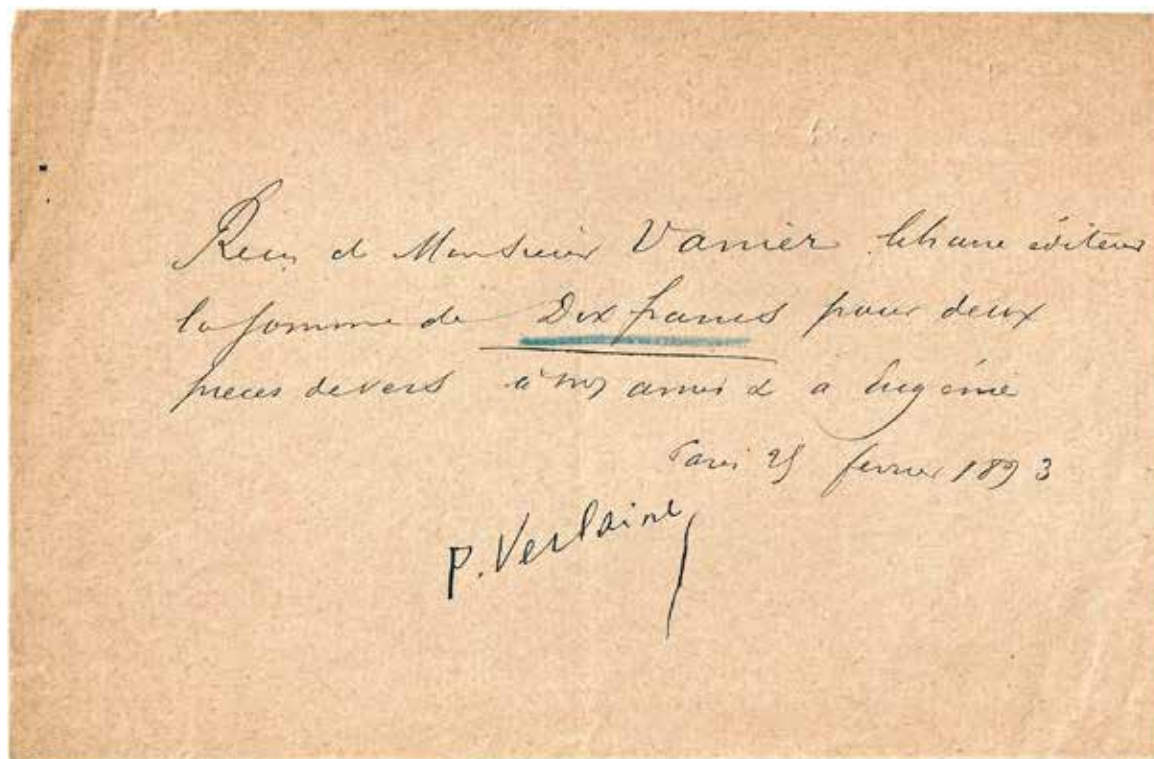 Reçu de Monsieur Vanier libraire éditeur
la somme de Dix francs pour deux
pièces de vers à mes amis & à Eugénie
Paris 25 février 1893
P. Verlaine